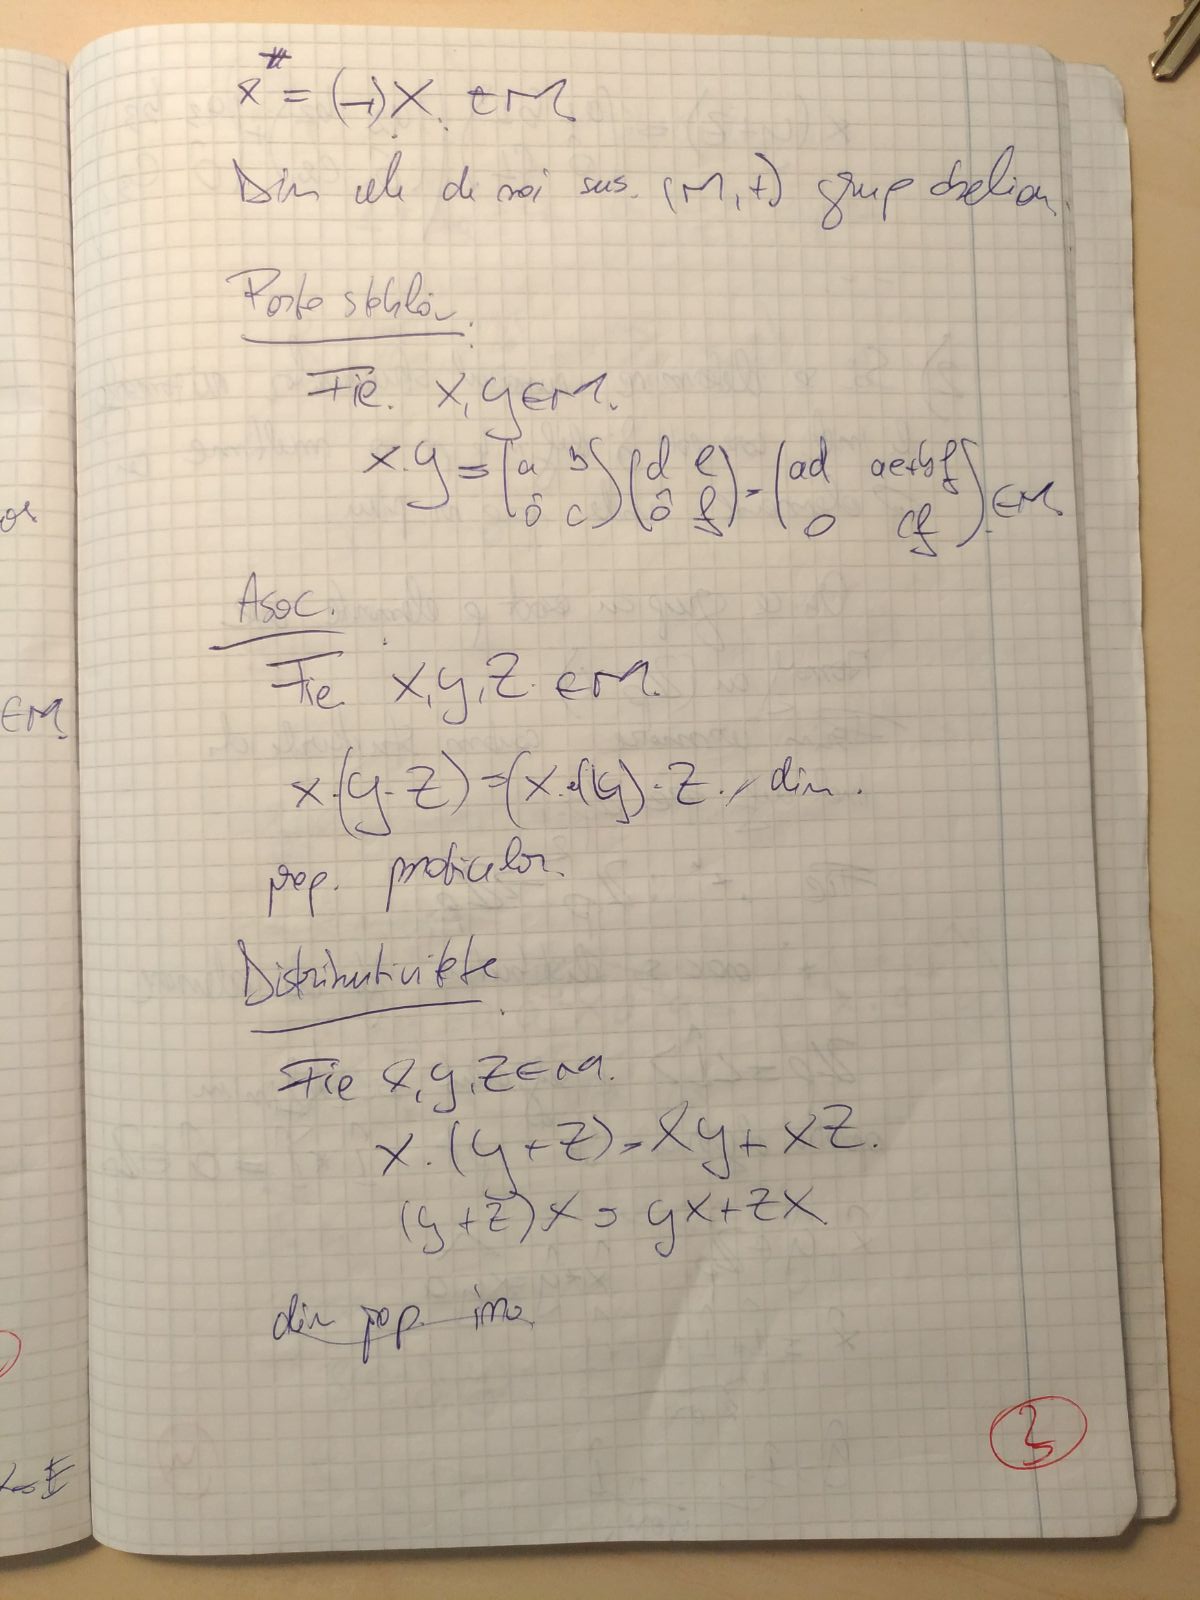 x* = (-1)X ∈ M
Din cele de mai sus (M,+) grup abelian.
Parte stabilă.
Fie. x, y ∈ M.
x·y = (a b / 0̂ c)(d e / 0̂ f) = (ad ae+bf / 0 cf) ∈ M
Asoc.
Fie. x, y, z ∈ M.
x·(y·z) = (x·y)·z, din.
prop. matricelor.
Distributivitate
Fie x, y, z ∈ M.
x·(y+z) = xy + xz.
(y+z)x = yx + zx
din prop.
3
∈ M